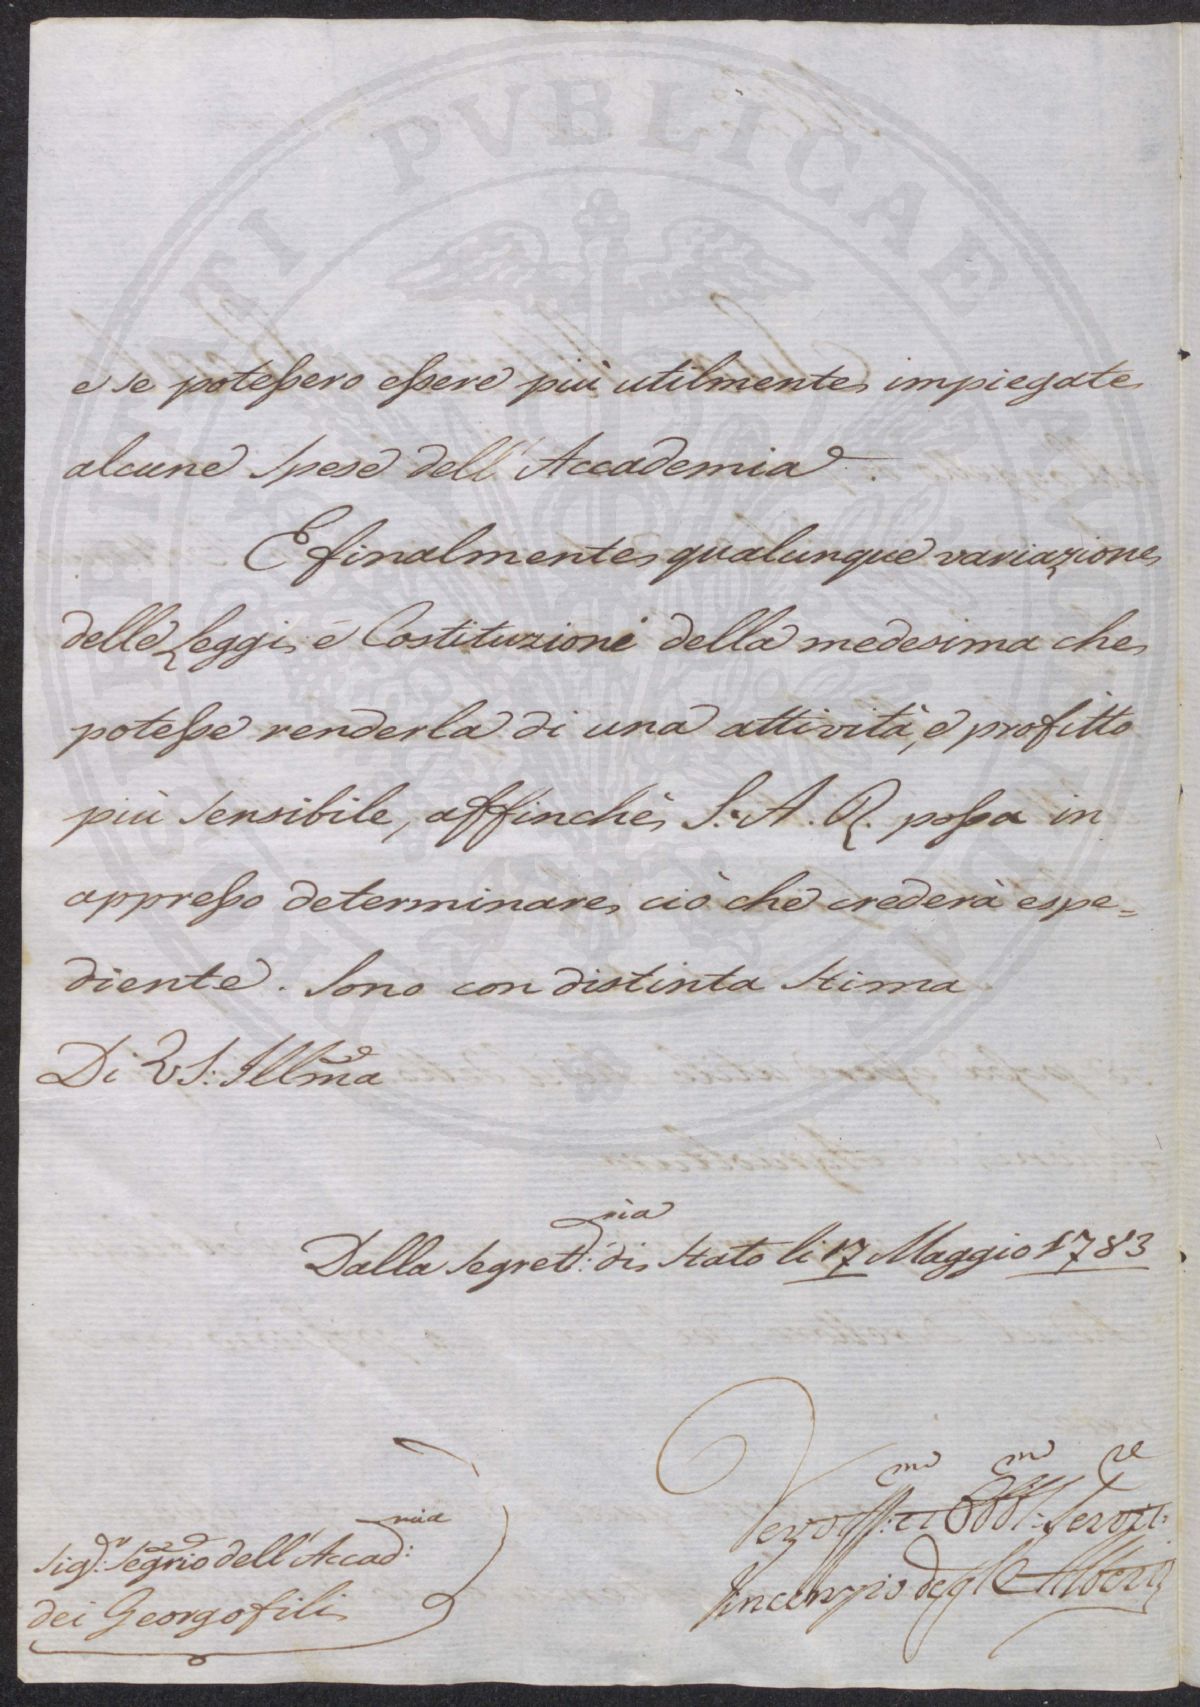 e se potessero essere più utilmente impiegate
alcune Spese dell'Accademia.
E finalmente qualunque variazione
delle Leggi, e Costituzioni della medesima che
potesse renderla di una attività, e profitto
più sensibile, affinchè S. A. R. possa in
appresso determinare ciò che crederà espe=
diente. Sono con distinta stima
Di VS: Illma
Dalla Segret:ria di Stato li 17 Maggio 1783
Devotiss:mo Obbl:mo Servit:re
Vincenzio degl'Alberti
Sig:r Segrio dell'Accad:mia
dei Georgofili
PVBLICAE